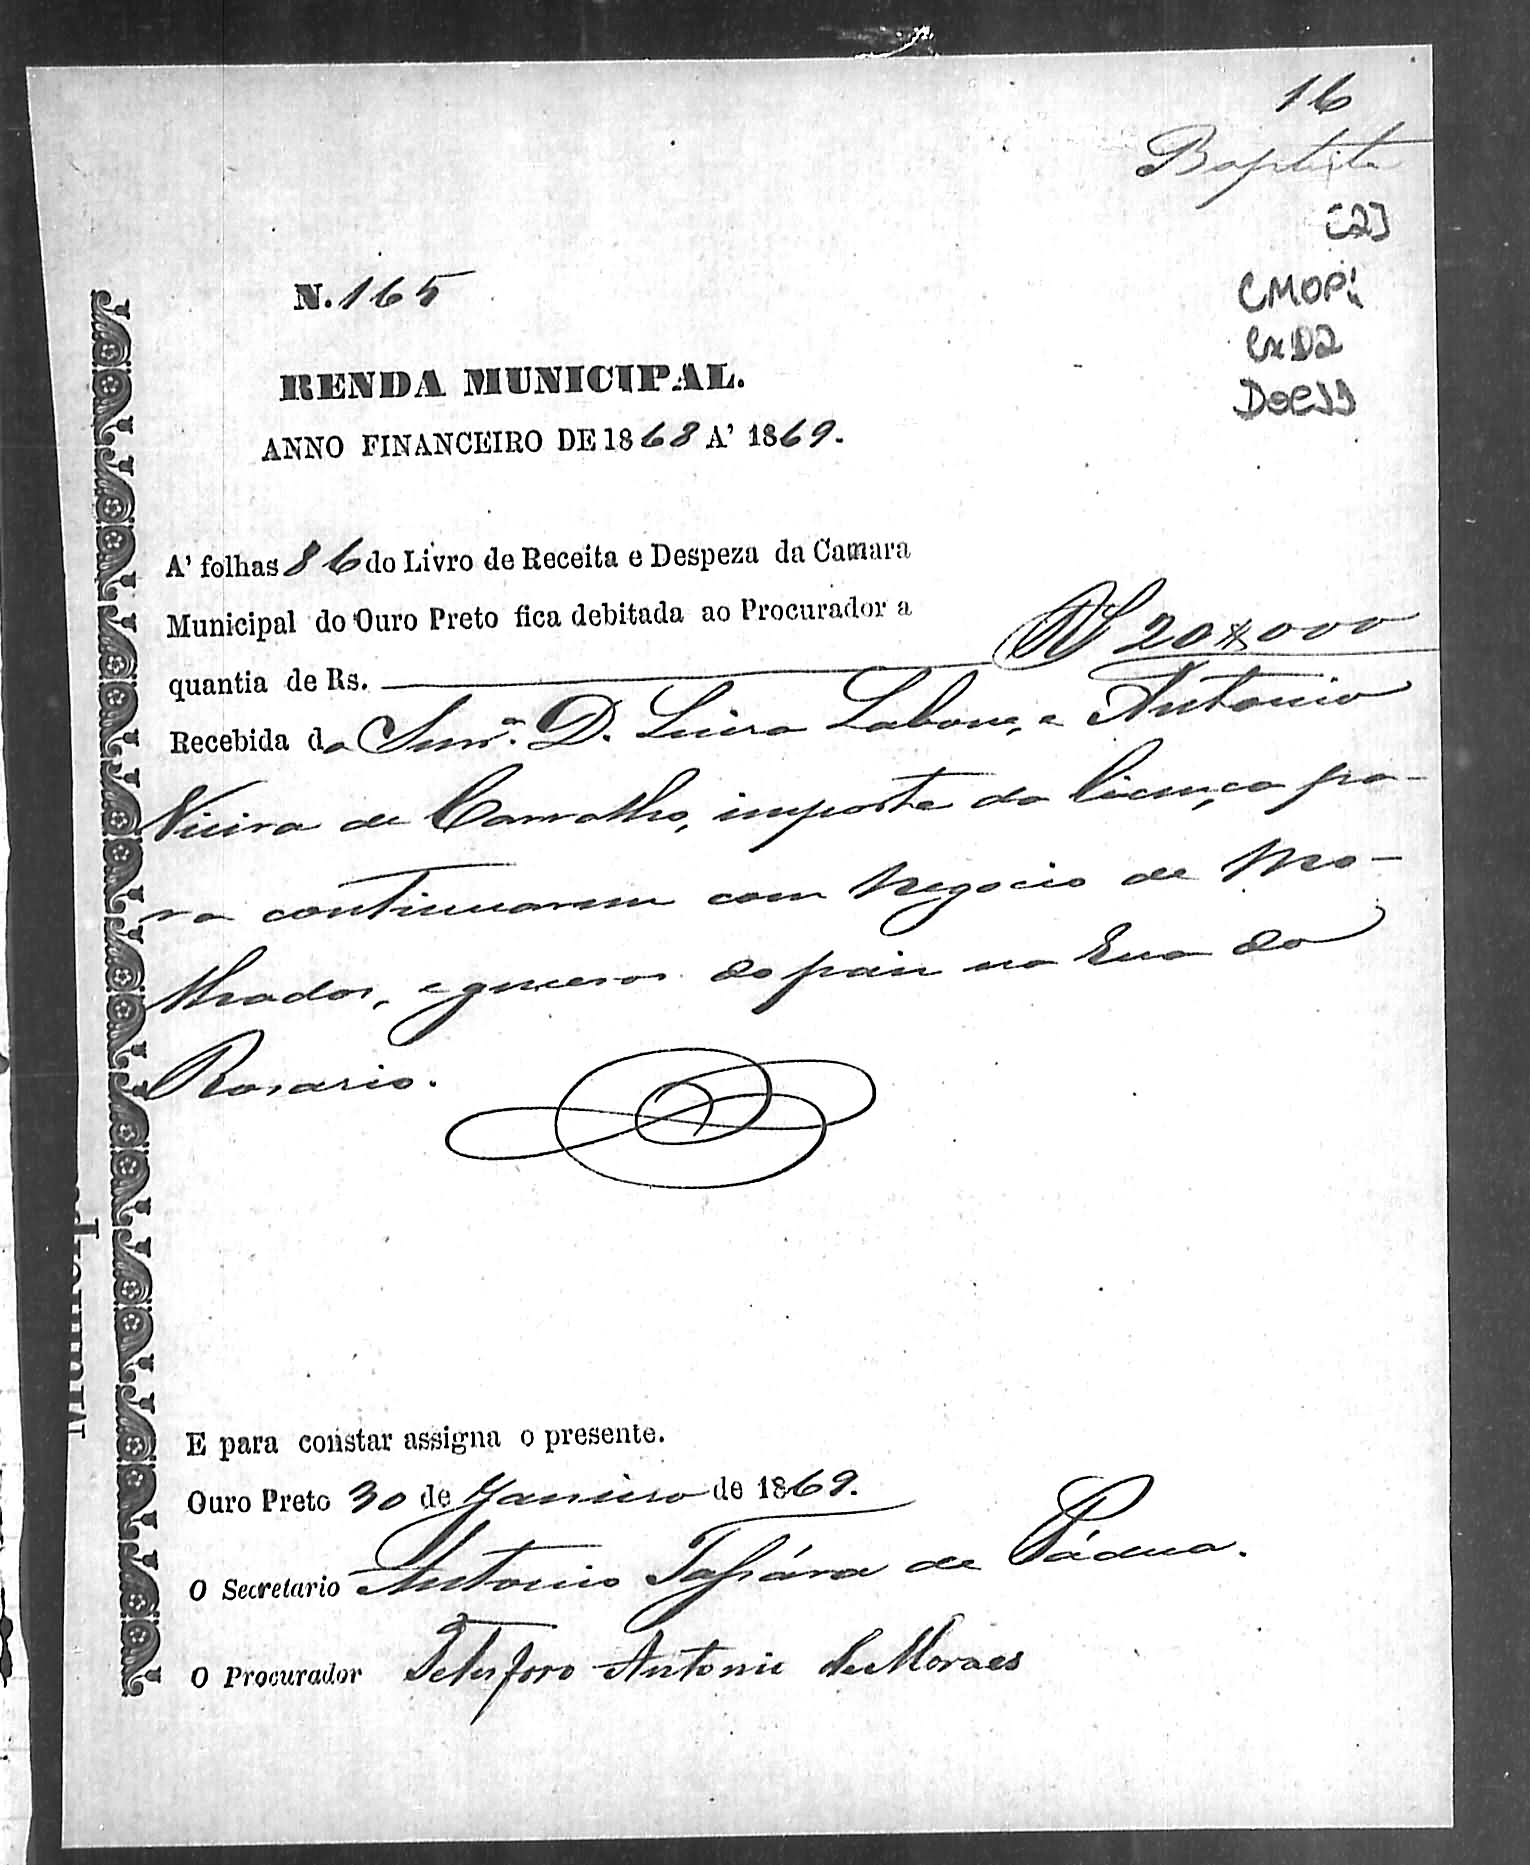 16
Baptista
[2]
CMOP:
Cx02
Doc11
N. 165
RENDA MUNICIPAL.
ANNO FINANCEIRO DE 1868 A' 1869.
A' folhas 86 do Livro de Receita e Despeza da Camara
Municipal do Ouro Preto fica debitada ao Procurador a
quantia de Rs. Rs 20$000
Recebida da Snrª. D. Luiza e Antonio
Vieira de Carvalho, importe da licença pa-
ra continuarem com negocio de Mo-
lhados, e generos do paiz na Rua do
Rosario.
E para constar assigna o presente.
Ouro Preto 30 de Janeiro de 1869.
O Secretario Antonio de Pádua.
O Procurador Telesforo Antonio de Moraes